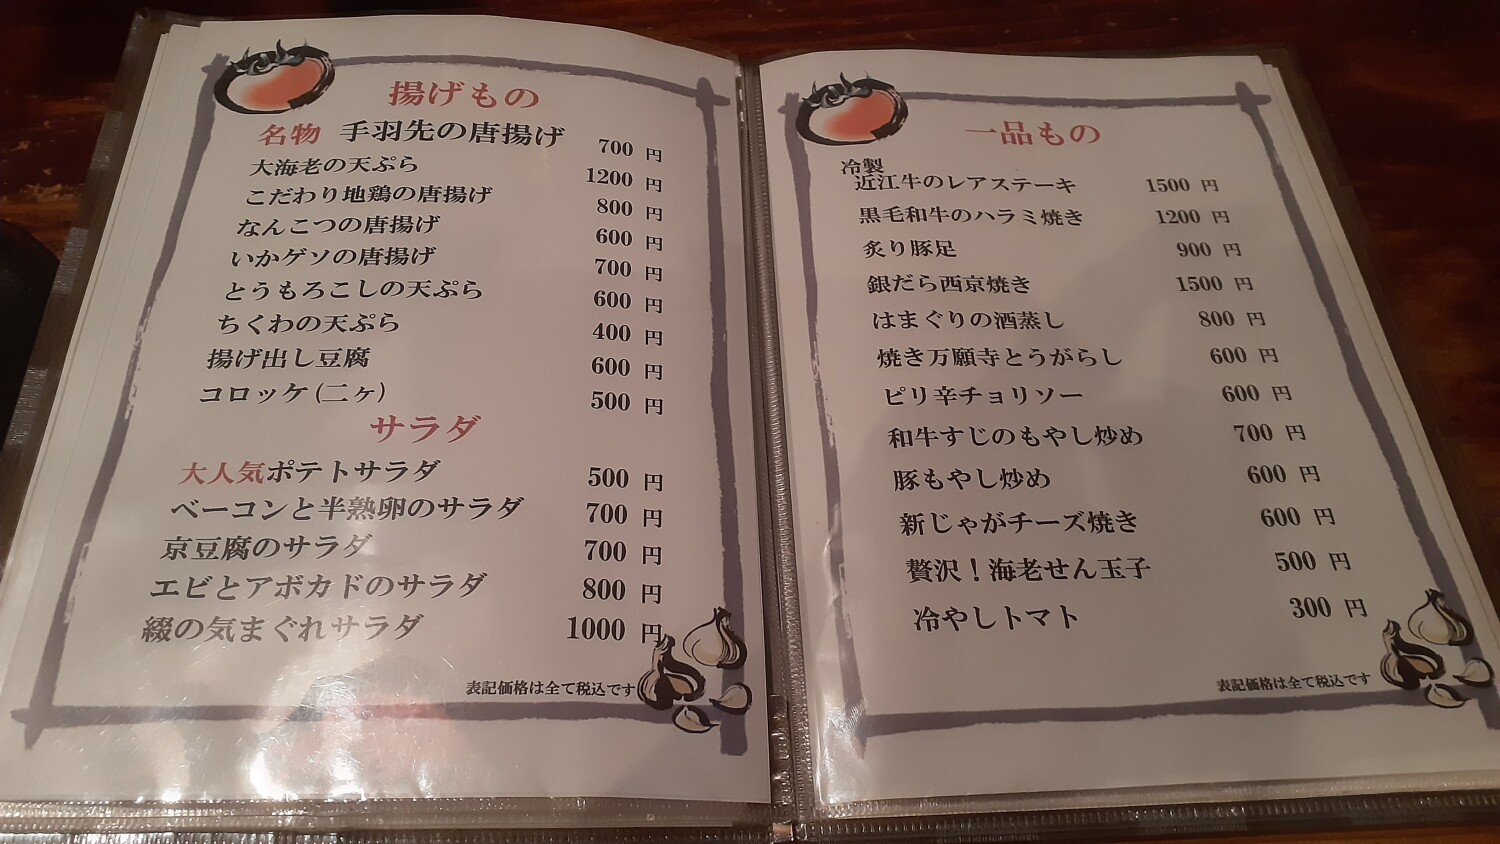 揚げもの
名物 手羽先の唐揚げ 700 円
大海老の天ぷら 1200 円
こだわり地鶏の唐揚げ 800 円
なんこつの唐揚げ 600 円
いかゲソの唐揚げ 700 円
とうもろこしの天ぷら 600 円
ちくわの天ぷら 400 円
揚げ出し豆腐 600 円
コロッケ(二ヶ) 500 円
サラダ
大人気ポテトサラダ 500 円
ベーコンと半熟卵のサラダ 700 円
京豆腐のサラダ 700 円
エビとアボカドのサラダ 800 円
綴の気まぐれサラダ 1000 円
表記価格は全て税込です
一品もの
冷製
近江牛のレアステーキ 1500 円
黒毛和牛のハラミ焼き 1200 円
炙り豚足 900 円
銀だら西京焼き 1500 円
はまぐりの酒蒸し 800 円
焼き万願寺とうがらし 600 円
ピリ辛チョリソー 600 円
和牛すじのもやし炒め 700 円
豚もやし炒め 600 円
新じゃがチーズ焼き 600 円
贅沢！海老せん玉子 500 円
冷やしトマト 300 円
表記価格は全て税込です